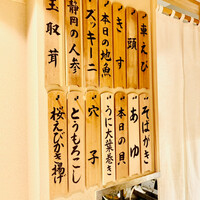 車えび
頭
きす
本日の地魚
ズッキーニ
静岡の人参
玉取茸
そばがき
あゆ
本日の貝
うに大葉巻き
穴子
とうもろこし
桜えびかき揚げ